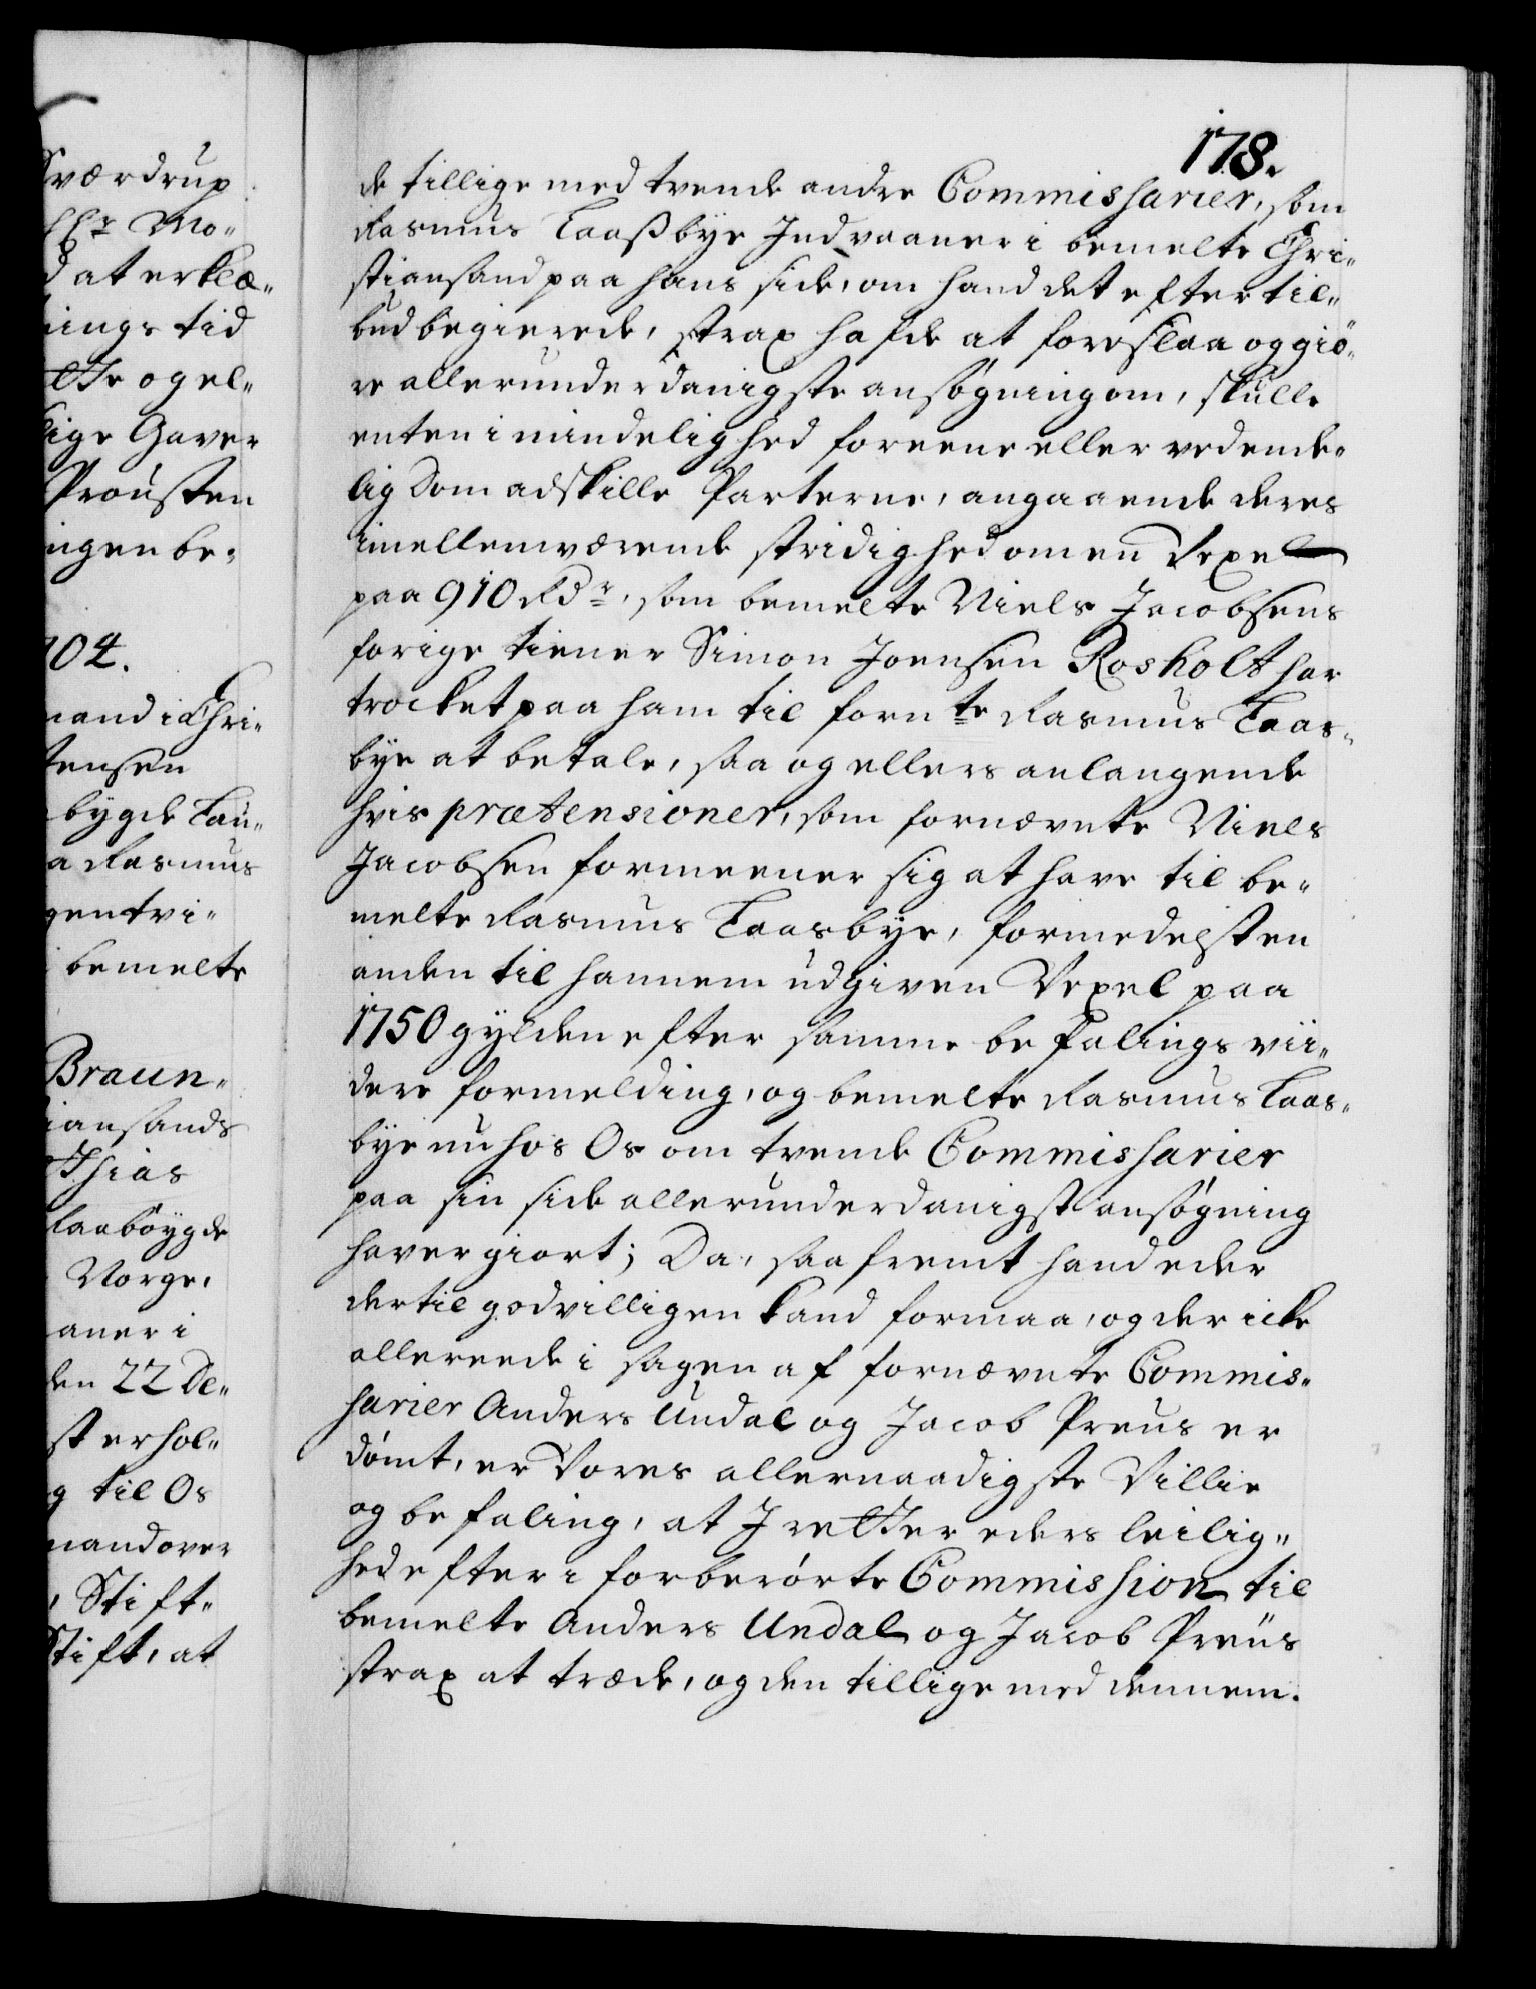 Sværdrup
Mo-
d at erklæ-
nings tid
lte og el-
lige Gaver
Prousten
ngen be-
704.
mand i Chri-
tensen
bygde Lau-
a Rasmus
gen tvi-
bemelte
Braun-
iansands
thias
Raabøygde
Norge,
aner i
den 22 De-
st erhol-
g til Os
mand over
, Stift-
Stift, at
178.
de tillige med tvende andre Commissarier, som
Rasmus Faaßbye Indvaaner i bemelte Chri-
stiansand paa hans side, om hand det efter til-
bud begierede, strax hafde at foreslaa og giö-
re allerunderdanigste ansøgning om, skulle
enten i mindelighed foreene eller ved ende-
lig Dom adskille Parterne, angaaende deres
imellemværende stridighed om en Vexel
paa 910 Rdr, som bemelte Niels Jacobsens
forige tiener Simon Joensen Rosholt har
trocket paa ham til fornte Rasmus Faas-
bye at betale, saa og ellers anlangende
hvis prætensioner, som fornævnte Niels
Jacobsen formeener sig at have til be-
melte Rasmus Faasbye, formedelst en
anden til hannem udgiven Vexel paa
1750 gylden efter samme befalings vii-
dere formelding, og bemelte Rasmus Faas-
bye nu hos Os om tvende Commissarier
paa sin side allerunderdanigst ansøgning
haver giort; Da, saafremt hand eder
dertil godvilligen kand formaa, og der icke
allereede i sagen af fornævnte Commis-
sarier Anders Undal og Jacob Preus er
dømt, er Vores allernaadigste Villie
og befaling, at I retter eders leilig-
hed efter i forberørte Commission til
bemelte Anders Undal og Jacob Preus
strax at træde, og den tillige med dennem.